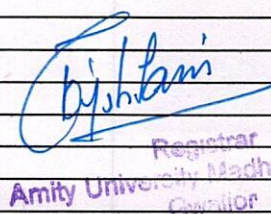 Registrar
Amity University Madh
Gwalior